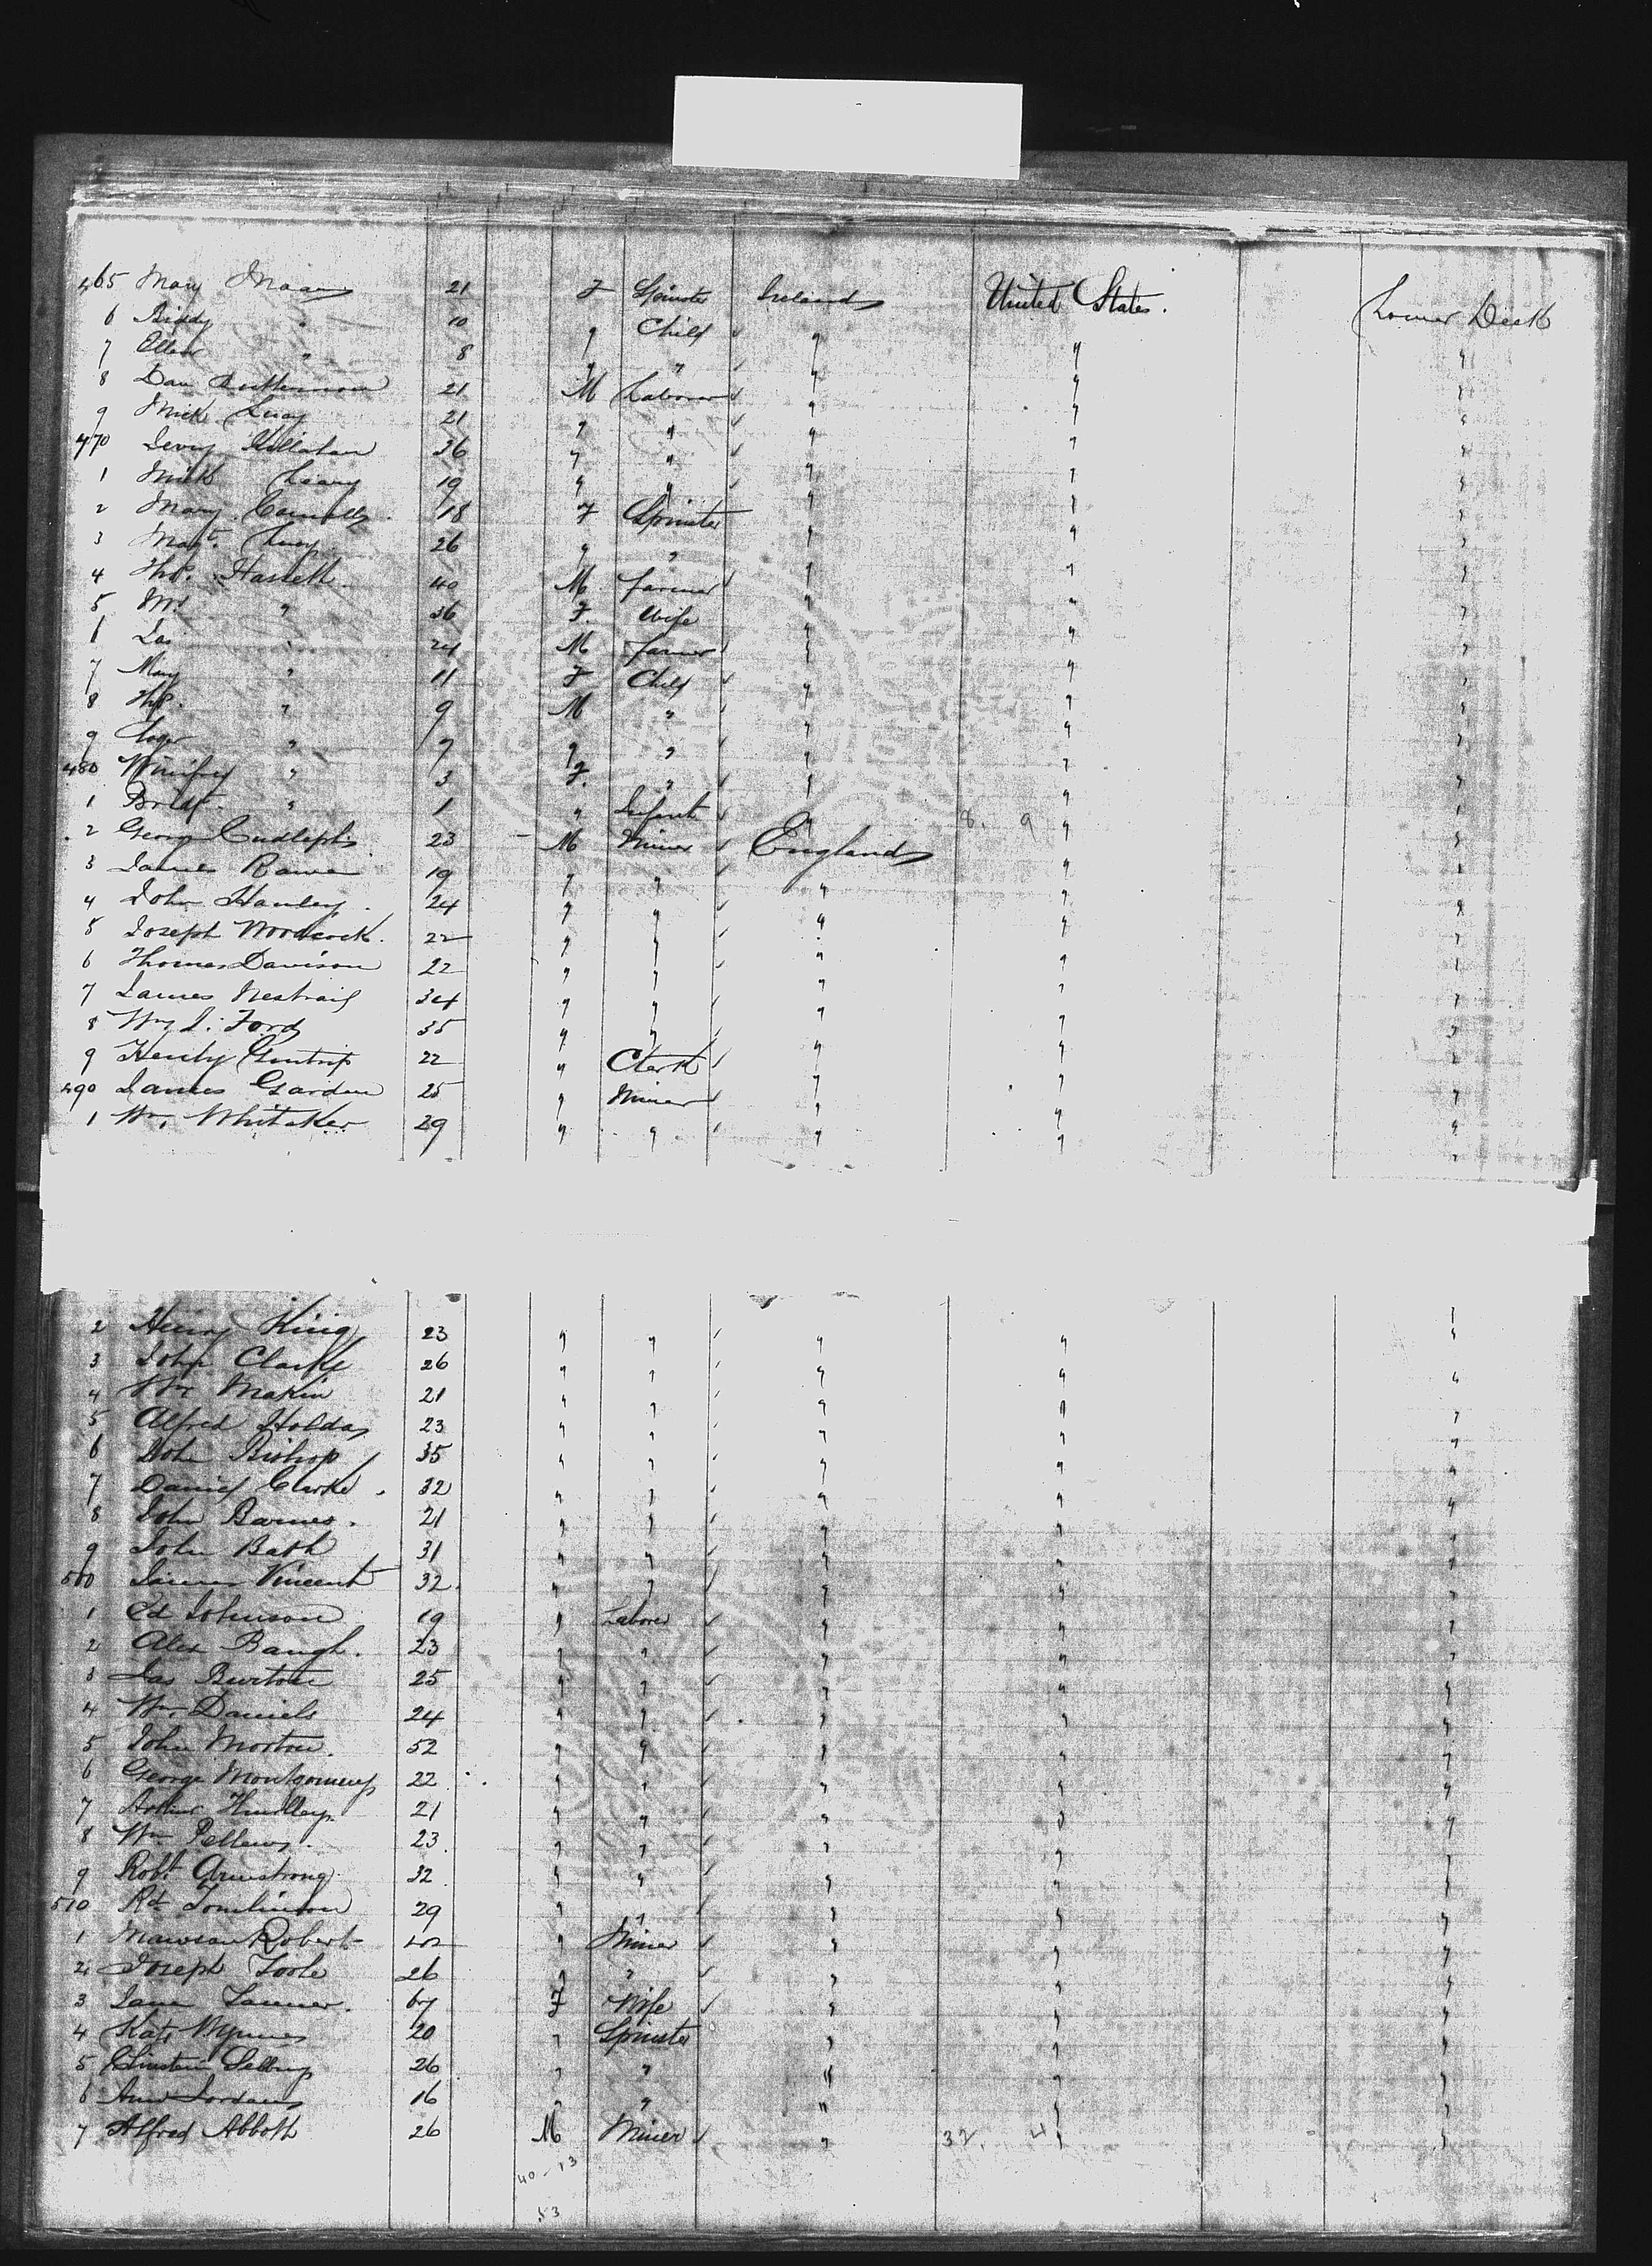 465 Mary 21 F Spinster Ireland United States. Lower Deck
6 Biddy " 10 " Child " " "
7 Ellen " 8 " " " " "
8 Dan 21 M Laborer " " "
9 Mick 21 " " " " "
470 36 " " " " "
1 Mick Leary 19 " " " " "
2 Mary Connolly 18 F Spinster " " "
3 Margt. 26 " " " " "
4 Thos. Hassett 40 M Farmer " " "
5 Mrs " 36 F. Wife " " "
6 Jas " 24 M Farmer " " "
7 Mary " 11 F Child " " "
8 Thos. " 9 M " " " "
9 " 7 " " " " "
480 Winifred " 3 F. " " " "
1 Bridt. " 1 " Infant " " "
2 George 23 M Miner England 8. 9 " "
3 James 19 " " " " "
4 John Hanley 24 " " " " "
5 Joseph Woodcock 22 " " " " "
6 Thomas Davison 22 " " " " "
7 James 34 " " " " "
8 Wm J. Ford 35 " " " " "
9 Henry 22 " Clerk " " "
490 James Garden 25 " Miner " " "
1 Wm. Whitaker 29 " " " " "
2 Henry King 23 " " " " "
3 John Clarke 26 " " " " "
4 Wm Makin 21 " " " " "
5 Alfred 23 " " " " "
6 John Bishop 35 " " " " "
7 Daniel Clarke 32 " " " " "
8 John Barnes. 21 " " " " "
9 John Bath 31 " " " " "
500 James Vincent 32 " " " " "
1 Ed Johnson 19 " Laborer " " "
2 Alex Baugh. 23 " " " " "
3 Jas Burton 25 " " " " "
4 Wm. Daniels 24 " " " " "
5 John Morton. 52 " " " " "
6 George Montgomery 22 " " " " "
7 Arthur 21 " " " " "
8 Wm Pellews. 23 " " " " "
9 Robt Armstrong 32 " " " " "
510 Rd Tomlinson 29 " " " " "
1 Mawson Robert " Miner " " "
2 Joseph Toole 26 " " " " "
3 Jane F Wife " " "
4 Kate Wynnes 20 " Spinster " " "
5 26 " " " " "
6 Ann Jordans 16 " " " " "
7 Alfred Abbott 26 M Miner " 32. 4 " "
40-13
53